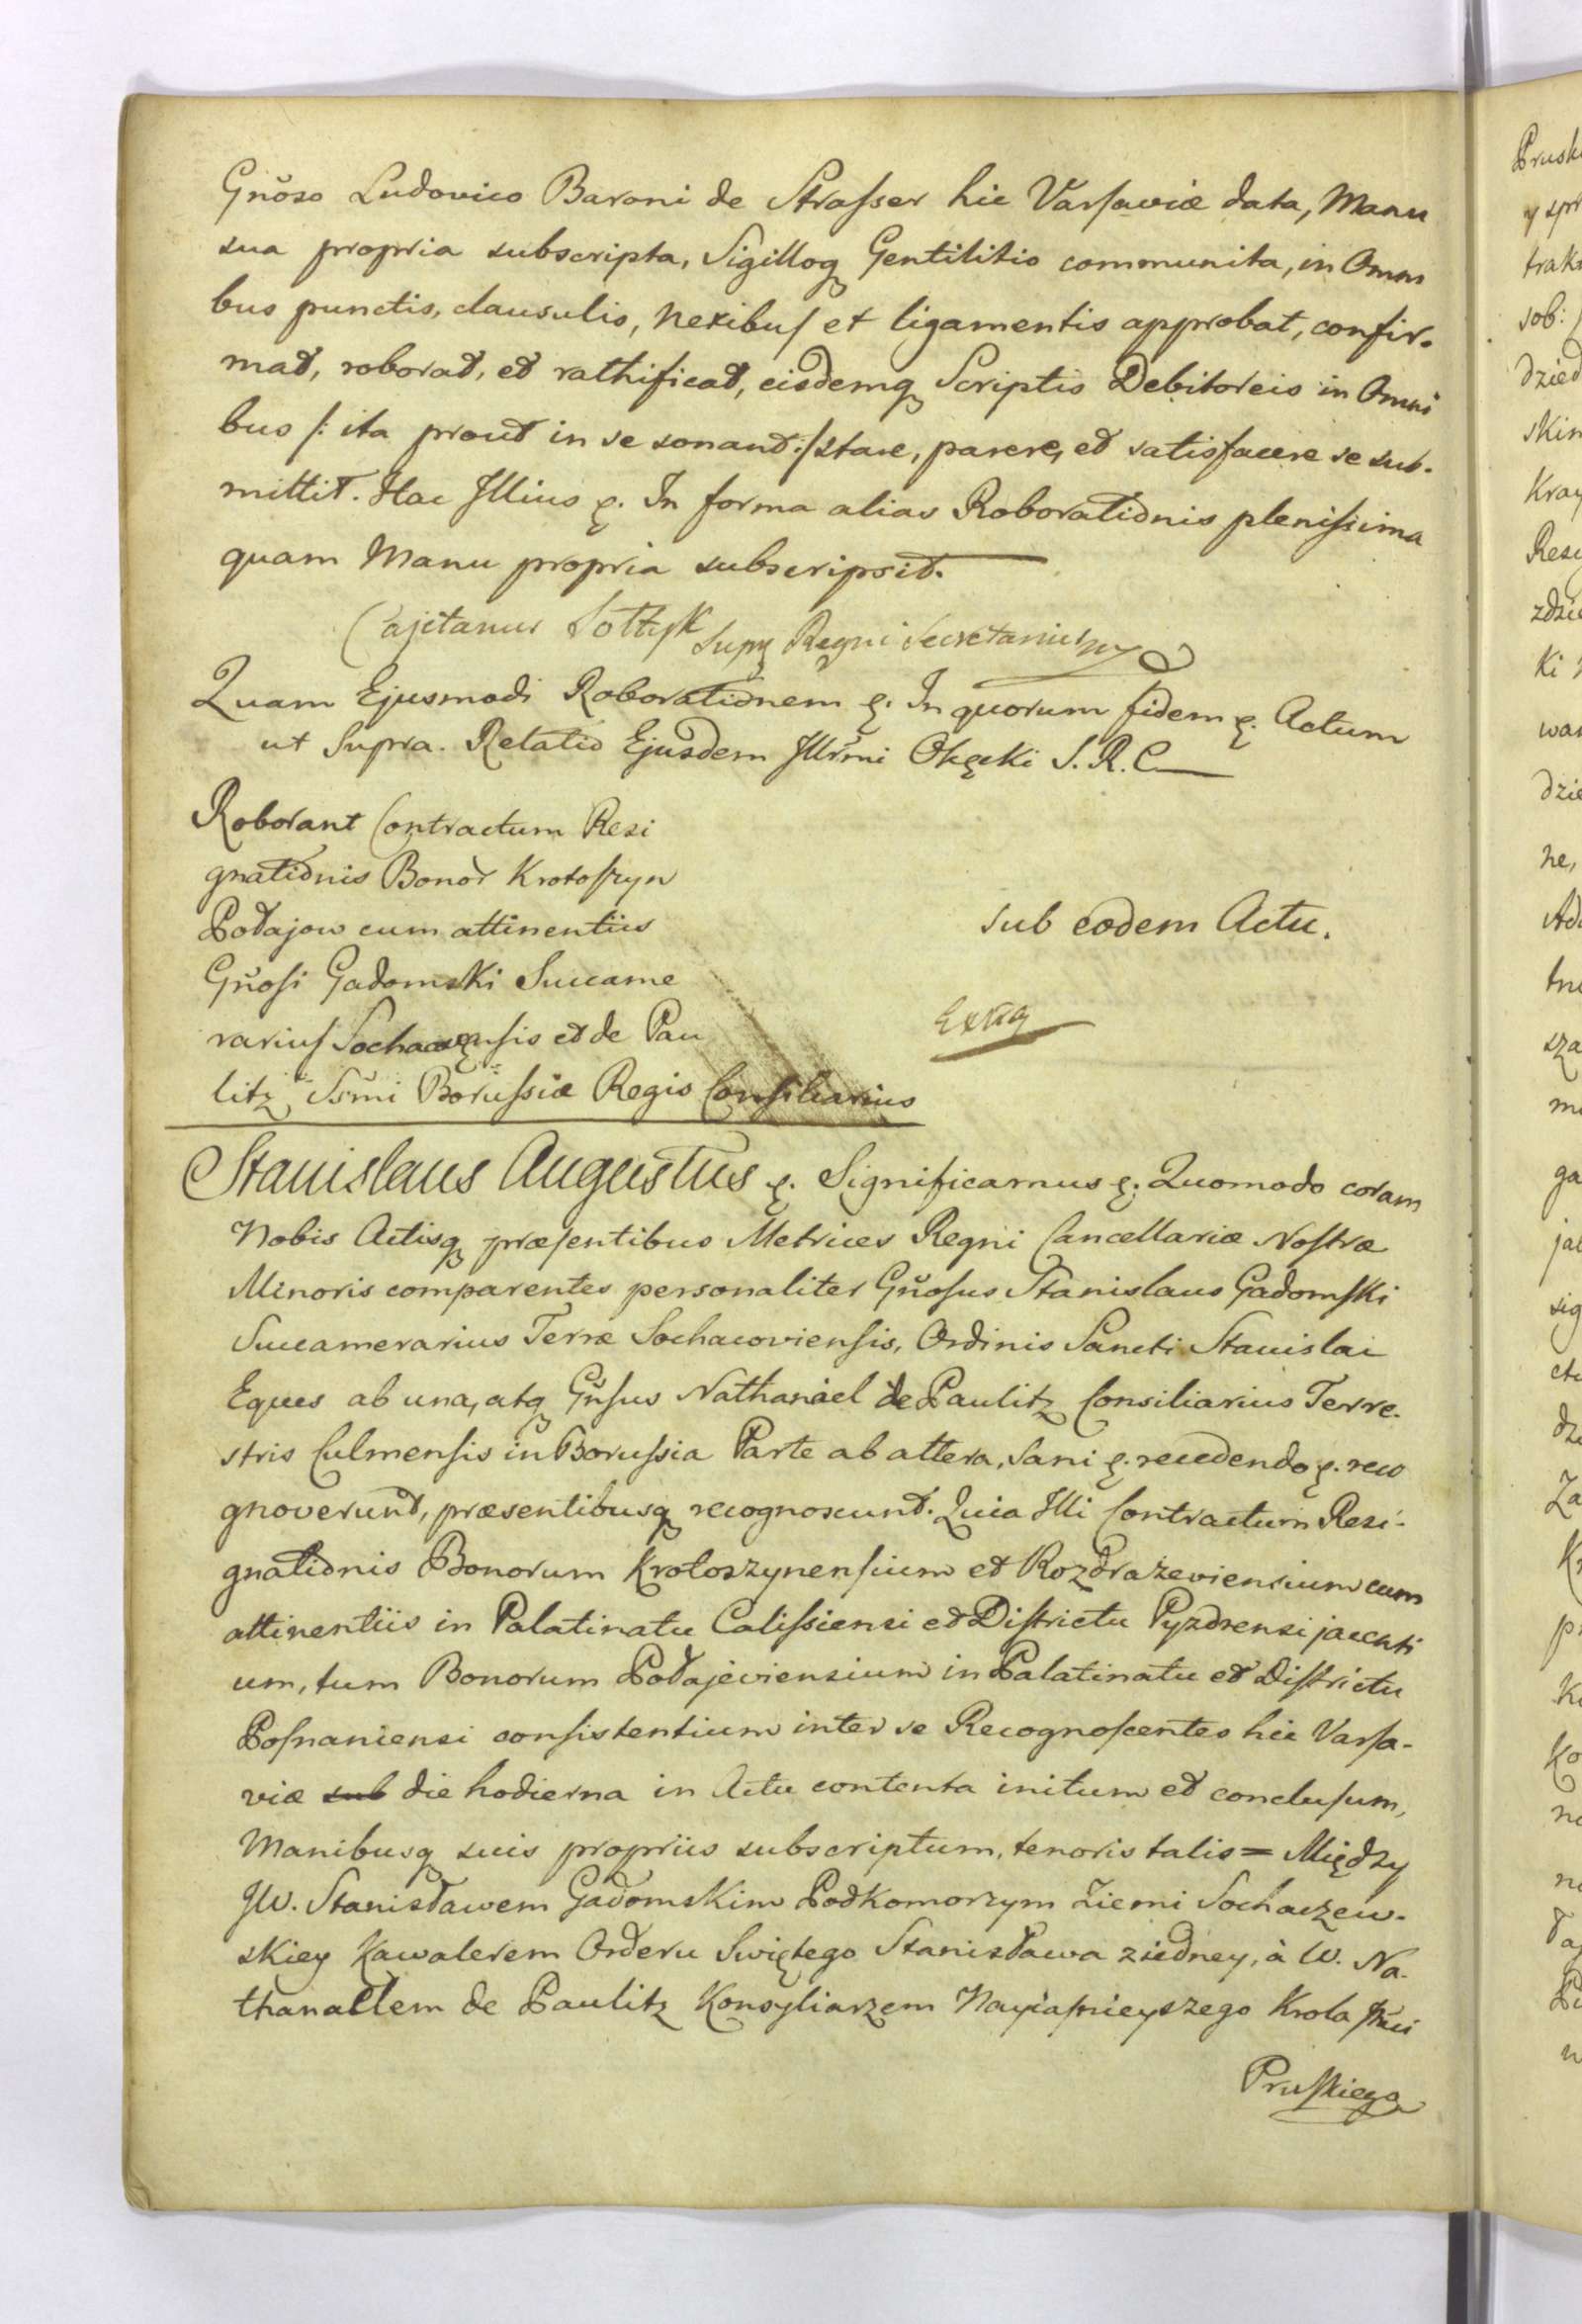 Gnoso Ludovico Baroni de Strasser hic Varsaviæ data, Manu
sua propria subscripta, Sigilloq Gentilitio communita, in Omni
bus punctis, clausulis, nexibus et ligamentis approbat, confir-
mat, roborat, et rathificat, eisdemq Scriptis Debitoreis in Omni
bus /: ita prout in se sonant :/ stare, parere, et satisfacere se sub-
mittit. Hac Illius &. In forma alias Roborationis plenissima
quam Manu propria subscripsit.
Cajetanus Sołtyk Supq Regni Secretarius mp
Quam Ejusmodi Roborationem &. In quorum fidem &. Actum
ut Supra. Relatio Ejusdem Illrmi Okęcki S. R. C.
Roborant Contractum Resi
gnationis Bonor Krotoszyn
Podajow cum attinentiis
Gnosi Gadomski Succame
rarius Sochacensis et de Pau
litz Srmi Borussiæ Regis Consiliarius
sub eodem Actu.
Extra
Stanislaus Augustus &. Significamus &. Quomodo coram
Nobis Actisq præsentibus Metrices Regni Cancellariæ Nostræ
Minoris comparentes personaliter Gnosus Stanislaus Gadomski
Succamerarius Terræ Sochacoviensis, Ordinis Sancti Stanislai
Eques ab una, atq Gnsus Nathanäel de Paulitz Consiliarius Terre-
stris Culmensis in Borussia Parte ab altera, Sani &. recedendo &. reco
gnoverunt, præsentibusq recognoscunt. Quia Illi Contractum Resi-
gnationis Bonorum Krotoszynensium et Rozdrażeviensium cum
attinentiis in Palatinatu Calissiensi et Districtu Pyzdrensi jacenti
um, tum Bonorum Podajeviensium in Palatinatu et Districtu
Posnaniensi consistentium inter se Recognoscentes hic Varsa-
viæ sub die hodierna in Actu contenta initum et conclusum,
Manibusq suis propriis subscriptum, tenoris talis = Między
JW. Stanisławem Gadomskim Podkomorzym Ziemi Sochaczew-
skiey Kawalerem Orderu Swiętego Stanisława ziedney, à W. Na-
thanaelem de Paulitz Konsyliarzem Nayiaśnieyszego Krola
Pruskiego